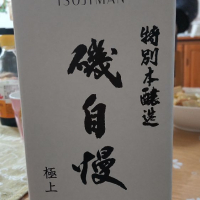 ISOJIMAN
特別本醸造
磯自慢
極上